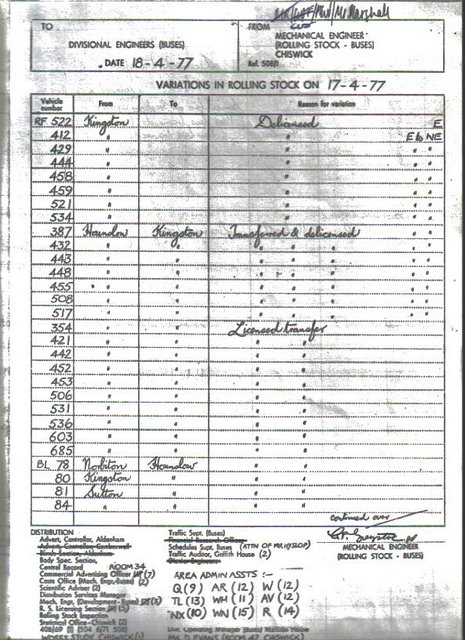 TO
FROM
DIVISIONAL ENGINEERS (BUSES)
MECHANICAL ENGINEER
(ROLLING STOCK - BUSES)
CHISWICK
DATE 18-4-77
Ref. 508/1
VARIATIONS IN ROLLING STOCK ON 17-4-77
Vehicle number From To Reason for variation
RF 522 Kingston Delicensed E
412 " " E6 NE
429 " " " "
444 " " " "
458 " " " "
459 " " " "
521 " " " "
534 " " " "
387 Hounslow Kingston Transferred & delicensed " "
432 " " " " " " "
443 " " " " " " "
448 " " " " " " "
455 " " " " " " "
508 " " " " " " "
517 " " " " " " "
354 " " Licensed transfer
421 " " " "
442 " " " "
452 " " " "
453 " " " "
506 " " " "
531 " " " "
536 " " " "
603 " " " "
685 " " " "
BL 78 Norbiton Hounslow " "
80 Kingston " " "
81 Sutton " " "
84 " " " "
continued over
MECHANICAL ENGINEER
(ROLLING STOCK - BUSES)
DISTRIBUTION
Advert. Controller, Aldenham
Body Spec. Section,
Central Record ROOM 34
Commercial Advertising Officer (7)
Costs Office (Mech. Engr. Buses) (2)
Scientific Adviser (2)
Distribution Services Manager
Mech. Engr. (Development - Buses)
R. S. Licensing Section (5)
Rolling Stock Inspection
Statistical Office - Chiswick (2)
Traffic Supt. (Buses)
Schedules Supt. Buses
Traffic Auditor, Griffith House (2)
AREA ADMIN ASSTS :-
Q (9) AR (12) W (12)
TL (13) WH (11) AV (12)
NX (10) WN (15) R (14)